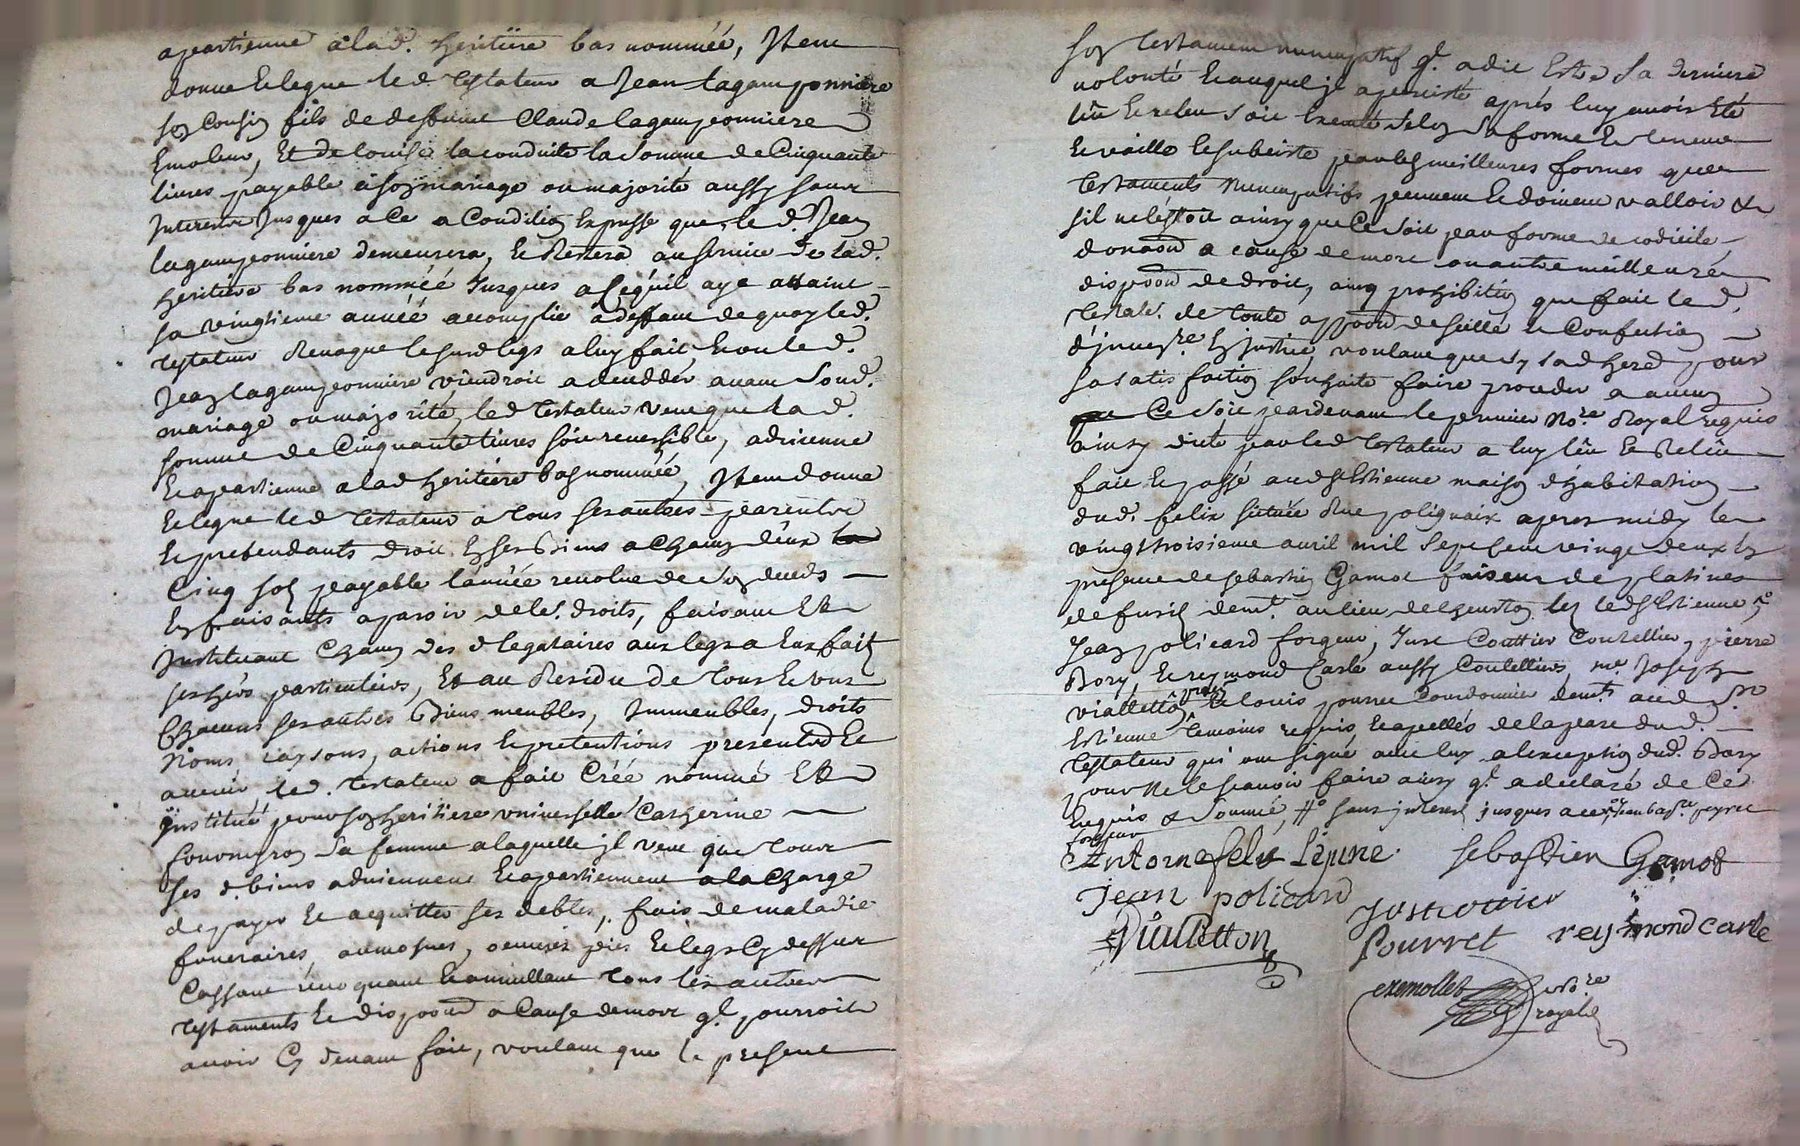 apartienne a lad. heritiere bas nommée, Item
donne & legue led testateur a Jean lagamponniere
son Cousin fils de deffunt Claude lagamponniere
Emoleur, Et de louise laconduite la Somme de Cinquante
livres payable a son mariage ou majorité aussy sans
Interests Jusques a Ce a Condition Expresse que led. Jean
lagamponniere demeurera, & Restera au service de lad.
heritiere bas nommée Jusques a Ce quil aye attaint
sa vingtieme année accomplie a deffaut de quoy led.
testateur Revoque le susd legs a luy fait, & ou led.
Jean lagamponniere viendroit a deceddér avant Sond.
mariage ou majorité, led testateur veut que lad.
somme de Cinquante livres soit reversible, advienne
& apartienne a lad heritiere bas nommée, Item donne
& legue led testateur a tous ses autres parents
& pretendants droit En ses Biens a Chacun d'eux
Cinq sols payable l'année revolue de son deceds
En faisants aparoir de lrs. droits, faisant Et
Instituant Chacun des d legataires aux legs a Eux faits
ses hers particuliers, Et au Residu de tous & uns
Chacuns ses autres Biens meubles, Immeubles, droits
Noms raisons, actions & pretentions presents &
avenir led. testateur a fait Créé nommé Et
Institué pour son heritiere universelle Catherine
fouvneyron Sa femme a laquelle il veut que tous
ses d. biens adviennent & apartiennent a la Charge
de payer & acquitter ses debtes, frais de maladie
funeraires, aumosnes, oeuvres pies & legs Cy dessus
Cassant revoquant & annullant tous les autres
testaments & dispoons a Cause de mort ql. pourroit
avoir Cy devant fait, voulant que le present
son testament nuncupatif ql. a dit Estre Sa derniere
volonté & auquel il a persisté aprés luy avoir Eté
lû & relu Soit Executé Selon Sa forme & teneur
& vaille & subsiste par les meilleures formes que
testaments nuncupatifs peuvent & doivent valloir &
sil ne l'éstoit ainsy que Ce soit par forme de codicile
donaon a cause de mort ou autre meilleure
dispoon de droit, avec prohibition que fait led.
testatr. de toute appoon de scellé & Confection
d'jnvenre. En justice, voulant que sy lad herere pour
sa satisfaction souhaite faire proceder a aucun
Ce soit pardevant le premier Nore. Royal requis
ainsy dicté par led testateur a luy lû & Relû
fait & passé aud St Estienne maison d'habitation
dud. felix située Rue polignaix apres midy le
vingt troisieme avril mil Sept Cent vingt deux En
presence de sebastien Gamot faiseur de platines
de fusils demt. au lieu de lheurton les led St Estienne
Jean policard forgeur, Just Couttier Coutellier, pierre
Bory, & reymond Carle aussy Coutelliers, me. Joseph
vialletton & louis pourret Courdonnier demts. aud St
Estienne temoins requis & apellés de la part dud.
testateur qui ont signé avec luy a lexception dud. Bory
pour ne le scavoir faire ainsy ql. a declaré de Cé
Enquis & Sommé, sans interest jusques a ce Jean bapte. peyret
forgeur
Antoine felix Lepine sebastien Gamot
jean policard
Just cottier
Vialletton Pourret reymond carle
notre
royal